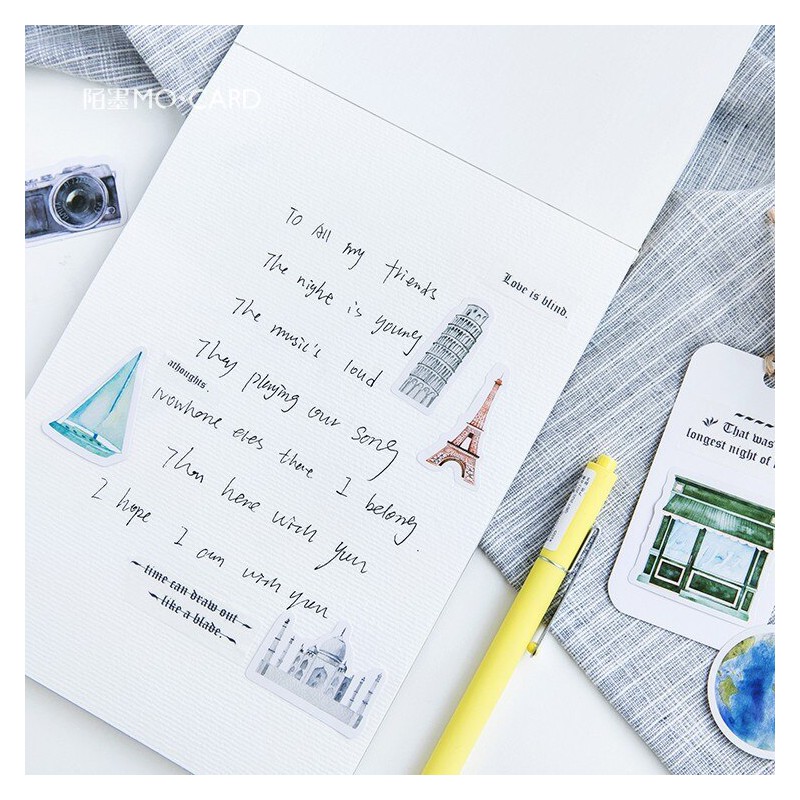 陌墨MO·CARD
To All my friends
Love is blind.
The night is young
The music's loud
They playing our song
athoughts.
Nowhone eles thone I belong.
Thon hene with yun
I hope I am with yun
time can draw out
like a blade.
That was
longest night of